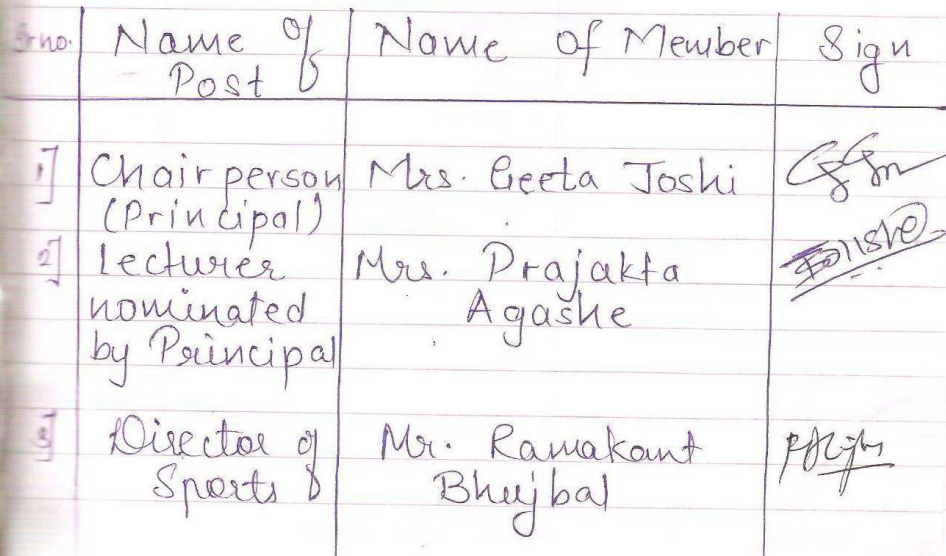 Sr no. Name of Post Name of Member Sign
1] Chairperson (Principal) Mrs. Geeta Joshi
2] Lecturer nominated by Principal Mrs. Prajakta Agashe
3] Director of Sports Mr. Ramakant Bhujbal